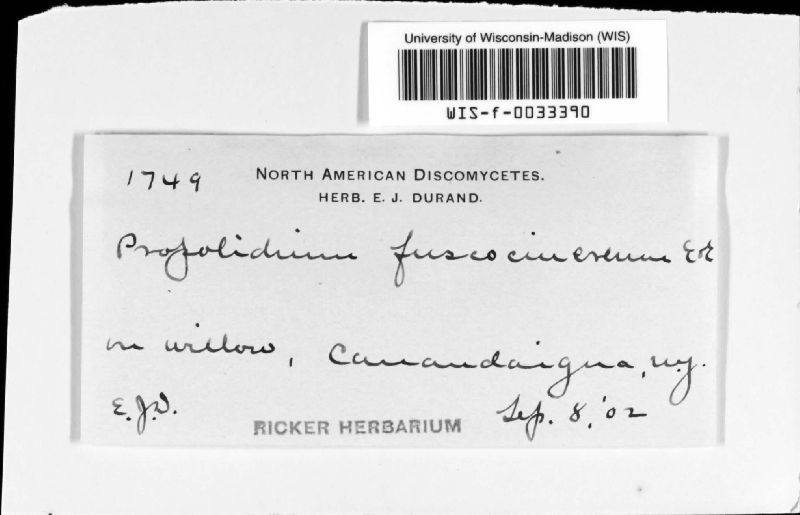 University of Wisconsin-Madison (WIS)
WIS-f-0033390
1749
NORTH AMERICAN DISCOMYCETES.
HERB. E. J. DURAND.
Propolidium fuscocinereum E&E
on willow, Canandaigua, N.Y.
E.J.D.
Sep. 8, '02
RICKER HERBARIUM